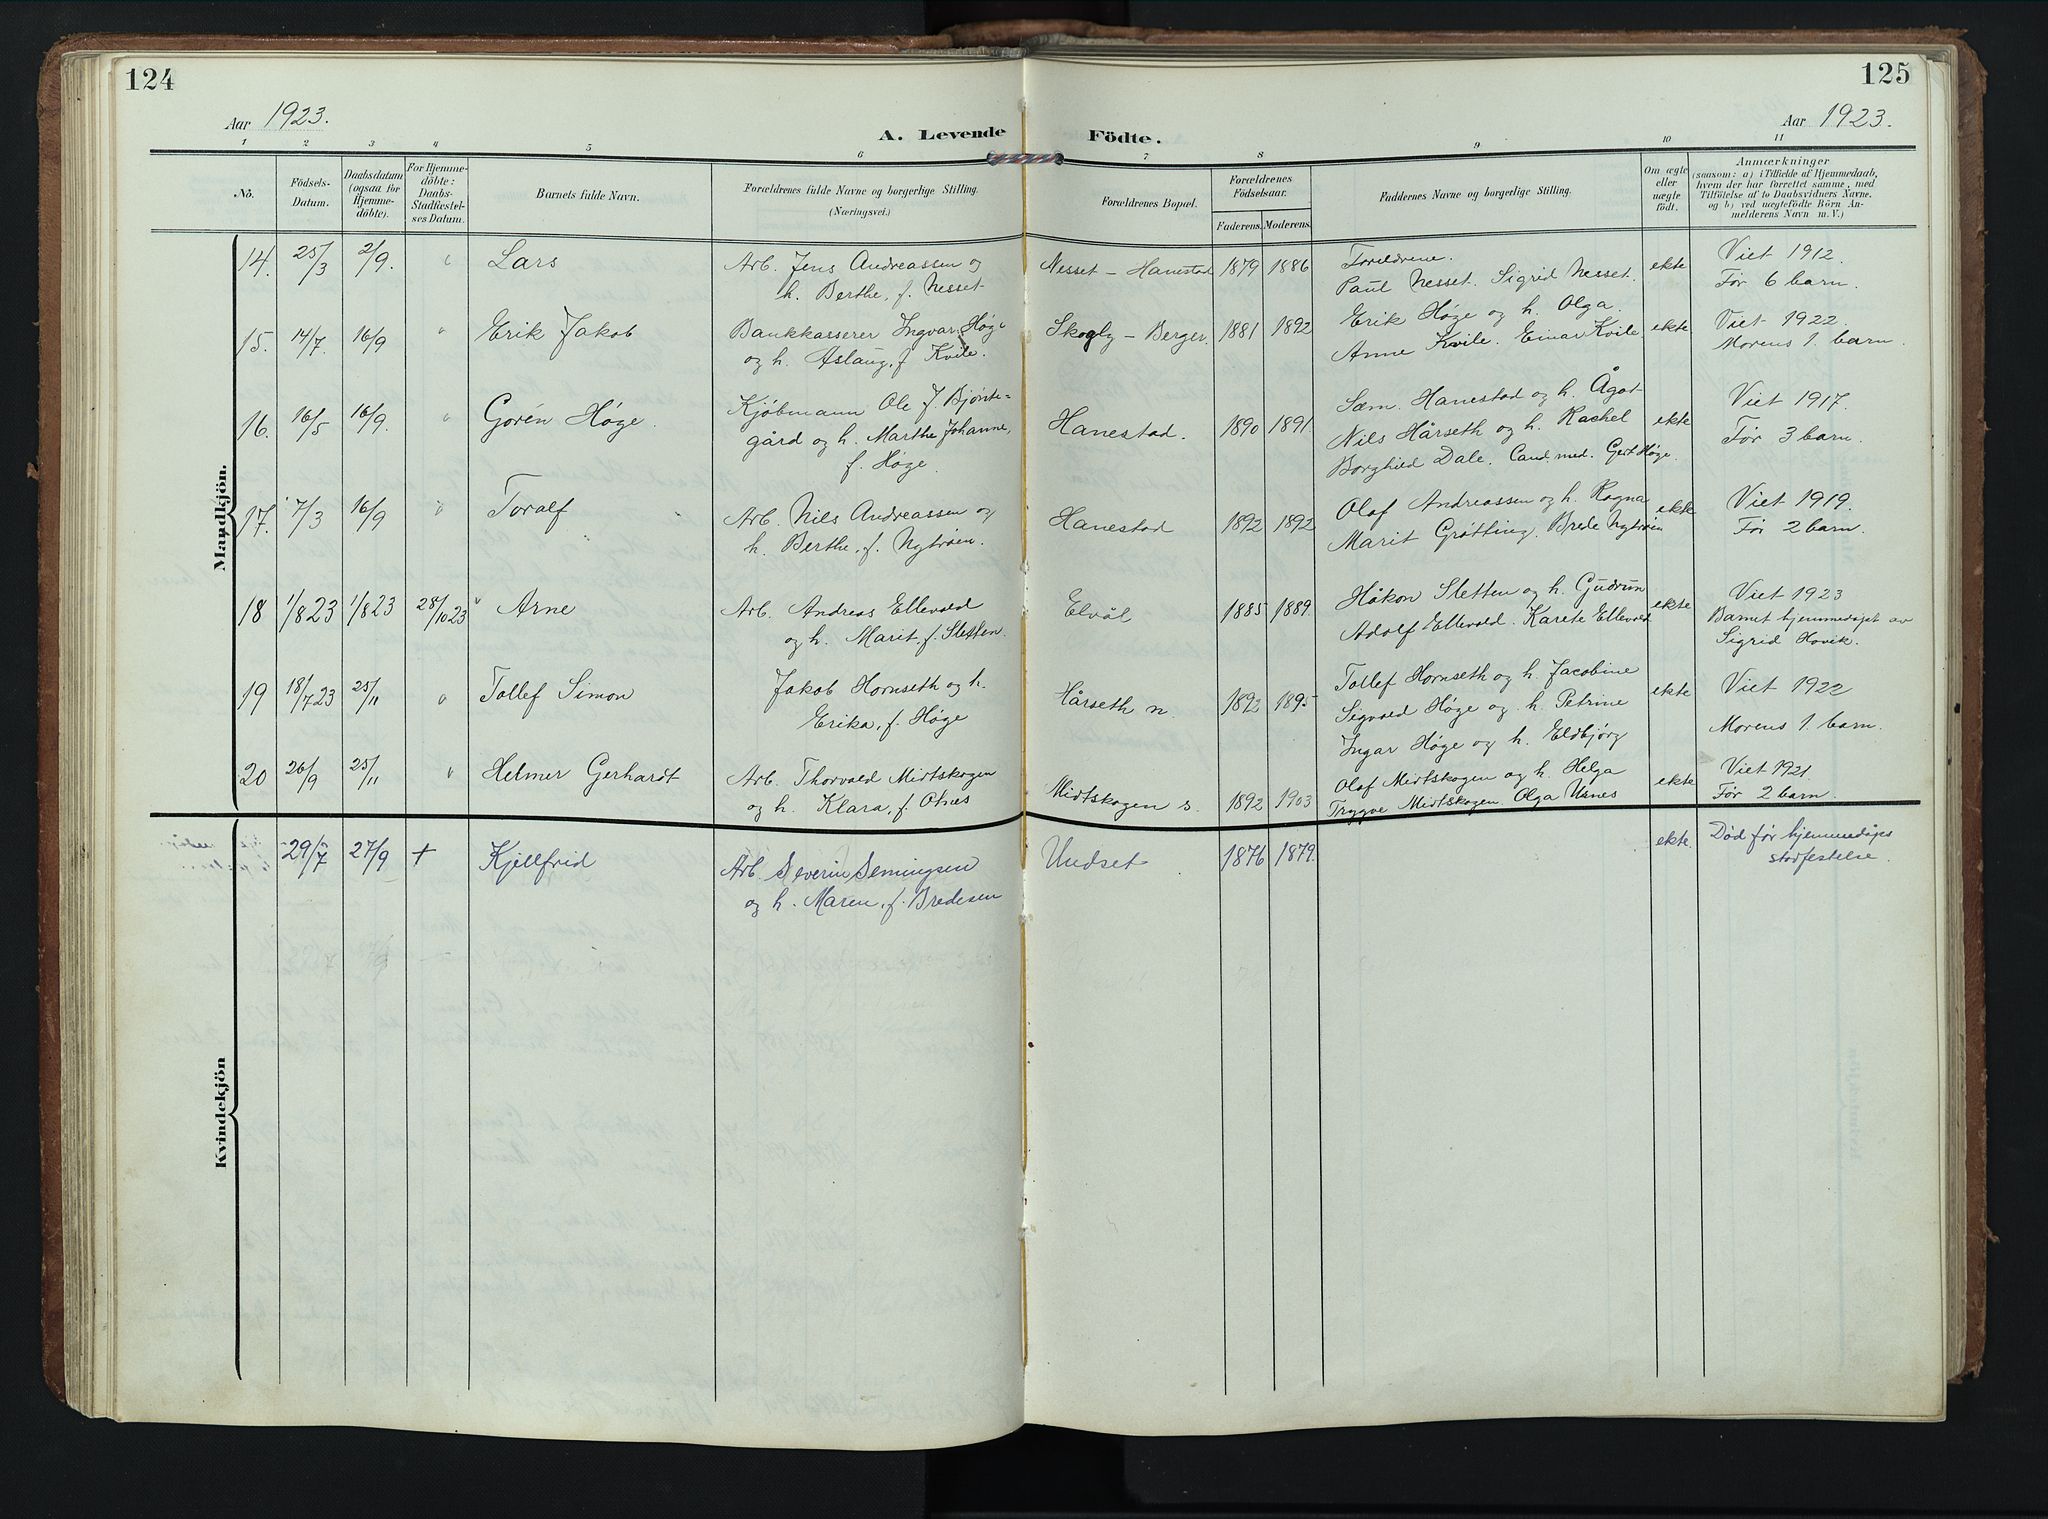 124
125
Aar 1923.
Aar 1923.
A. Levende Födte.
1 2 3 4 5 6 7 8 9 10 11
No.
Födsels-
Datum.
Daabsdatum
(ogsaa for
Hjemme-
döbte).
For Hjemme-
döbte:
Daabs-
Stadfæstel-
ses Datum.
Barnets fulde Navn.
Forældrenes fulde Navne og borgerlige Stilling.
(Næringsvei.)
Forældrenes Bopæl.
Forældrenes
Födselsaar.
Faderens. Moderens.
Faddernes Navne og borgerlige Stilling.
Om ægte
eller
uægte
födt.
Anmærkninger
(saasom: a) i Tilfælde af Hjemmedaab,
hvem der har forrettet samme, med
Tilföielse af to Daabsvidners Navne.
og b) ved uægtefödte Börn An-
melderens Navn m. V.)
Mandkjön.
14. 25/3 2/9. " Lars Arb. Jens Andreassen og Nesset - Hanestad 1879 1886 Foreldrene. ekte Viet 1912.
h. Berthe, f. Nesset. Paul Nesset. Sigrid Nesset. Før 6 barn.
15. 14/7. 16/9 " Erik Jakob Bankkasserer Ingvar Høge Skogly - Berger. 1881 1892 Erik Høge og h. Olga. ekte Viet 1922.
og h. Aslaug, f. Kvile. Anne Kvile. Einar Kvile. Morens 1. barn.
16. 16/5 16/9. " Gorén Høge. Kjøbmann Ole J. Bjønte- Hanestad. 1890 1891 Sæm. Hanestad og h. Ågot ekte Viet 1917.
gård og h. Marthe Johanne, Nils Hårseth og h. Rachel Før 3 barn.
f. Høge. Borghild Dale. Cand. med. Gert Høge.
17. 7/3 16/9 " Toralf Arb. Nils Andreassen og Hanestad 1892 1892 Olaf Andreassen og h. Ragna ekte Viet 1919.
h. Berthe, f. Nytrøen. Marit Grøtting. Brede Nytrøen Før 2 barn.
18 1/8 23 1/8 23 28/10 23 " Arne Arb. Andreas Ellevold Elvål 1885 1889. Håkon Sletten og h. Gudrun ekte Viet 1923
og h. Marit, f. Sletten. Adolf Ellevold. Karete Ellevold Barnet hjemmedøpt av
Sigrid Hovik.
19 18/7 23 25/11 " Tollef Simon Jakob Hornseth og h. Hårseth n. 1892 1895 Tollef Hornseth og h. Jacobine ekte Viet 1922
Erika, f. Høge Sigvald Høge og h. Petrine Morens 1. barn.
Ingar Høge og h. Eldbjørg
20 26/9 25/11 " Helmer Gerhardt Arb. Thorvald Midtskogen Midtskogen s. 1892 1903 Olaf Midtskogen og h. Helga ekte Viet 1921.
og h. Klara, f. Otnes Trygve Midtskogen. Olga Usnes Før 2 barn.
Kvindekjön
29/7 27/9 + Kjellfrid Arb. Severin Semingsen Undset 1876 1879. ekte. Død før hjemmedåps
og h. Maren, f. Bredesen stadfestelse.